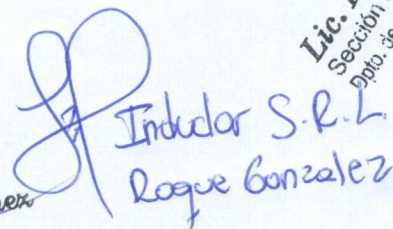 Lic.
Sección
Dpto. de
Indudar S.R.L.
Roque Gonzalez